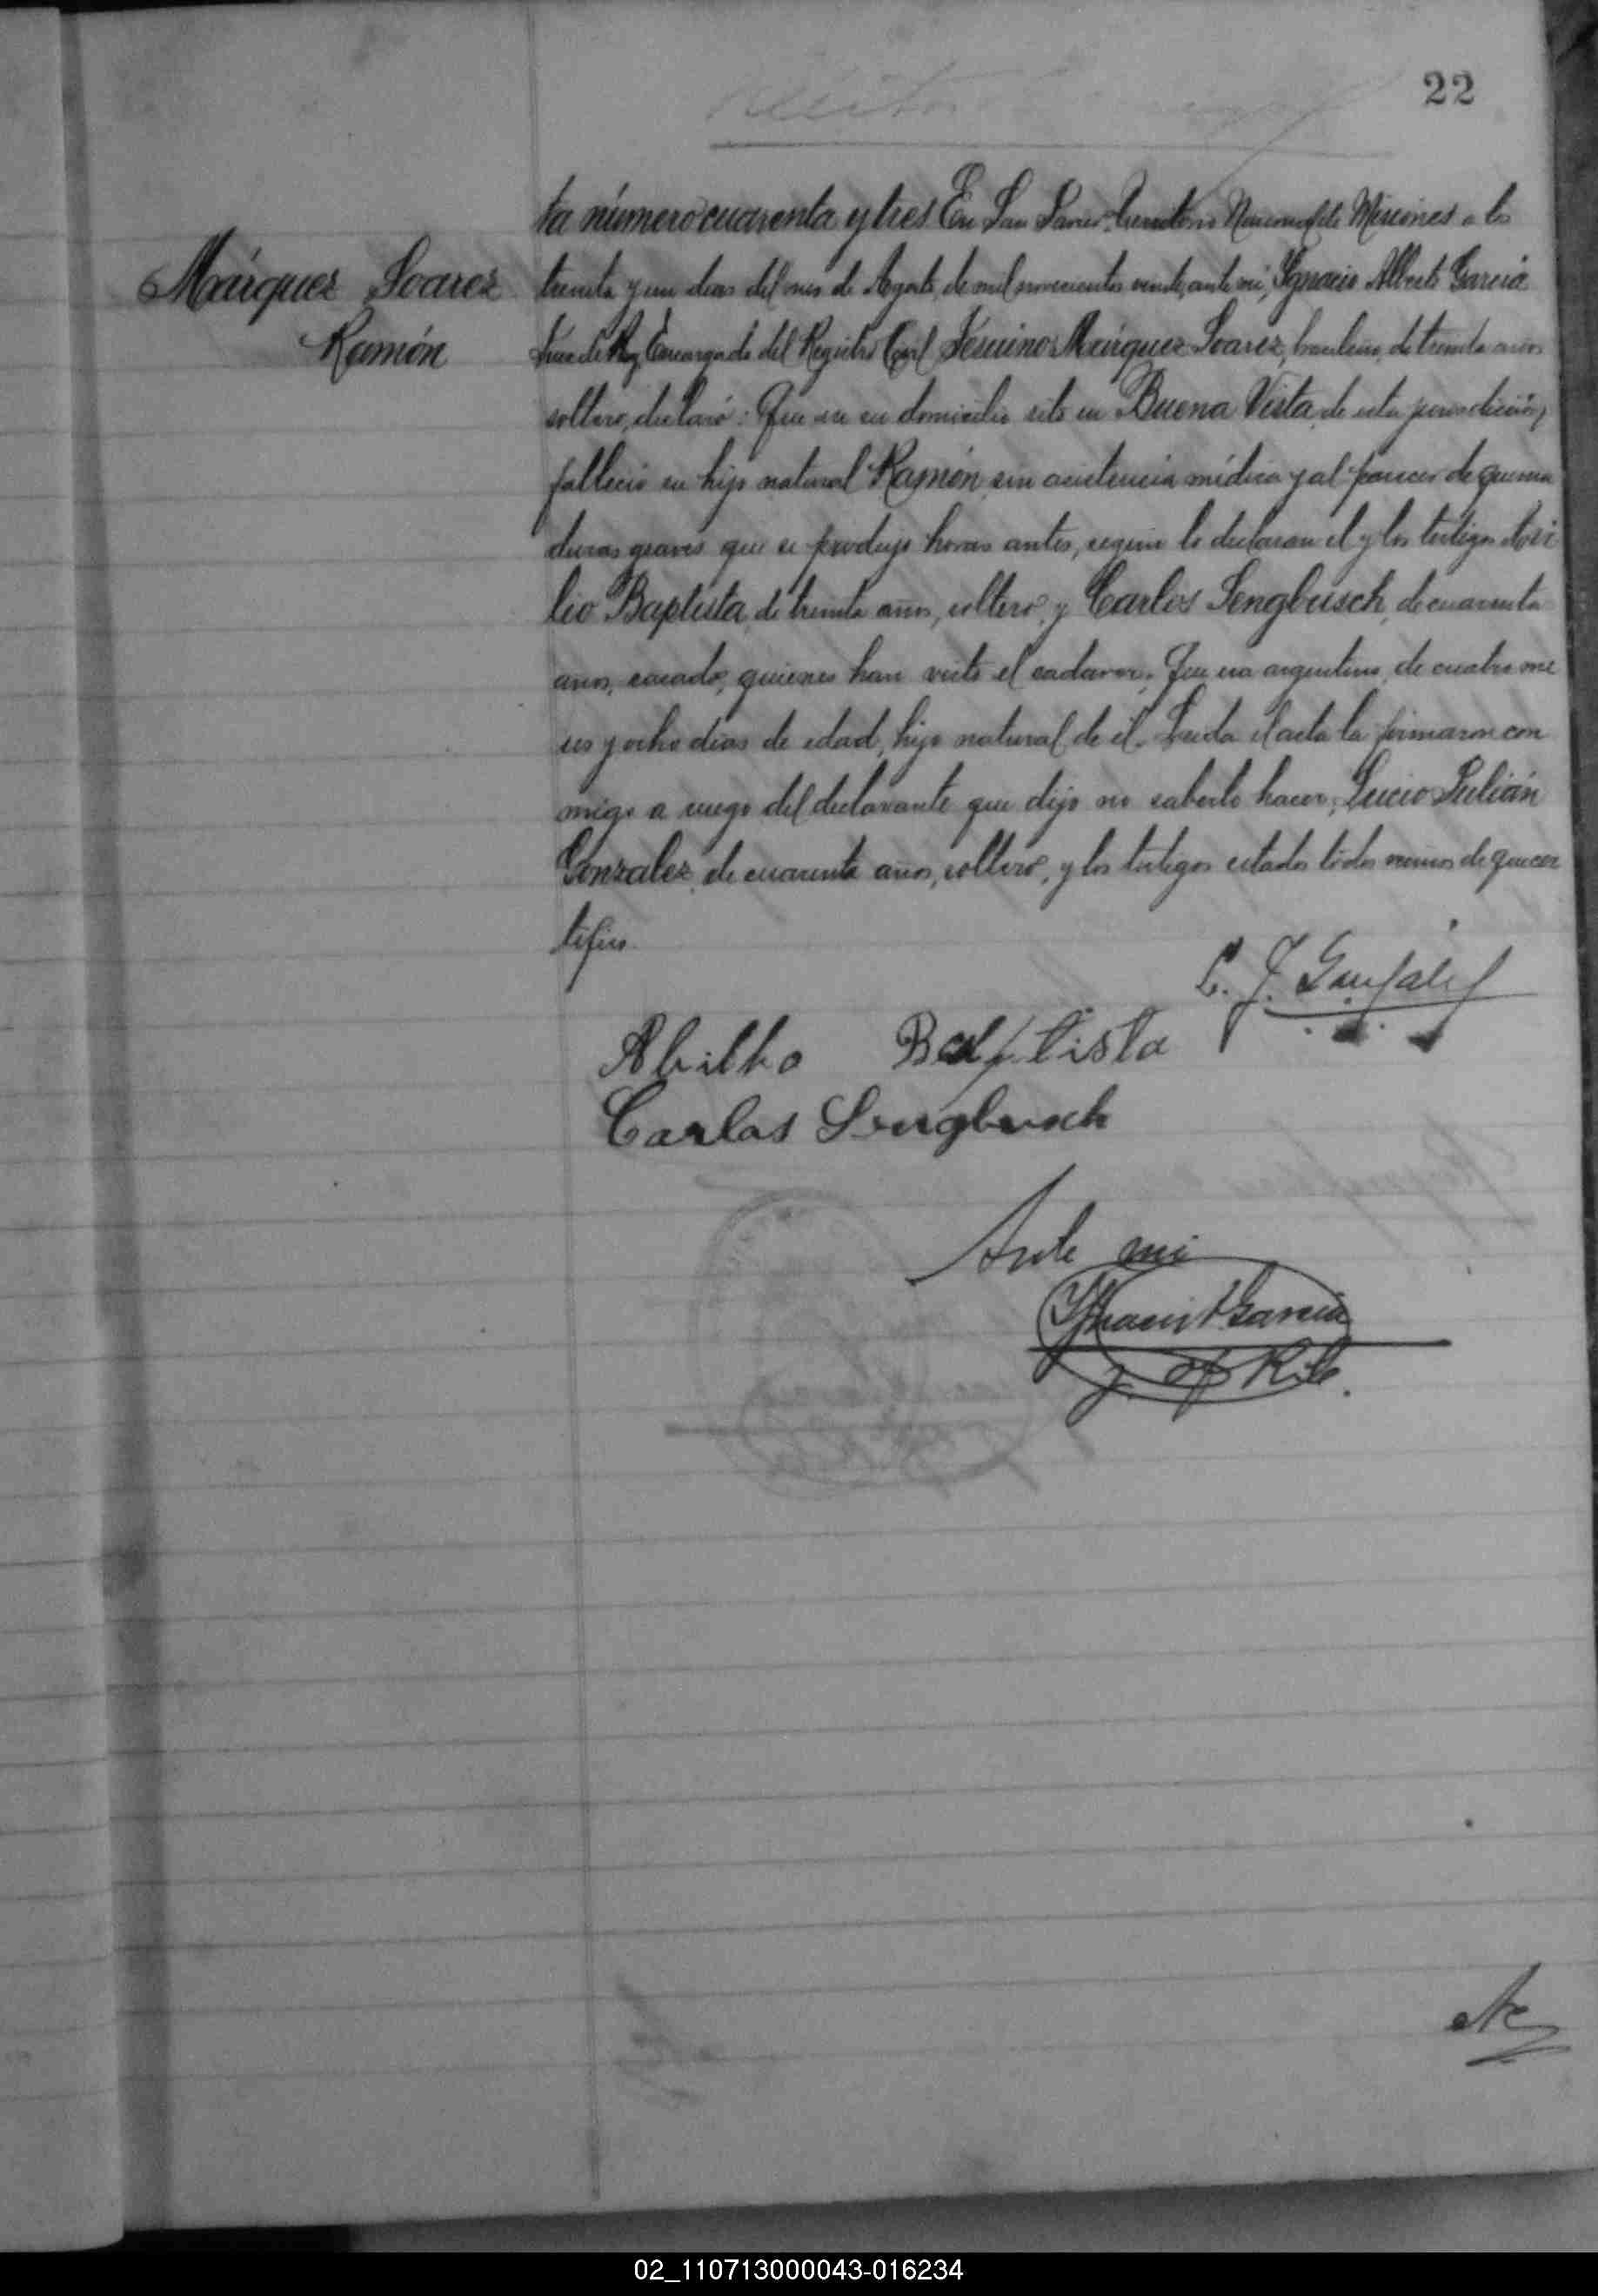 22
Márquez Soarez
Ramón
ta número cuarenta y tres En San Javier Territorio Nacional de Misiones a los
treinta y un dias del mes de Agosto de mil novecientos veinte, ante mi, Ygnacio Alberto García
Juez de Paz Encargado del Registro Civil Jesuino Márquez Soarez, brasileño, de treinta años
soltero, declaró: Que en su domicilio sito en Buena Vista, de esta jurisdicción,
falleció su hijo natural Ramón sin asistencia médica y al parecer de quema
duras graves que se produjo horas antes, según lo declaran el y los testigos
lio Baptista, de treinta años, soltero, y Carlos Sengbusch, de cuarenta
años, casado, quienes han visto el cadaver. Que era argentino, de cuatro me
ses y ocho dias de edad, hijo natural de él. Leida el acta la firmaron con
migo a ruego del declarante que dijo no saberlo hacer, Lucio Julián
Gonzalez, de cuarenta años, soltero, y los testigos citados todos vecinos de que cer
tifico.
L. J. González
Abilho Baptista
Carlos Sengbusch
Ante mi
Ygnacio A Garcia
02_110713000043-016234